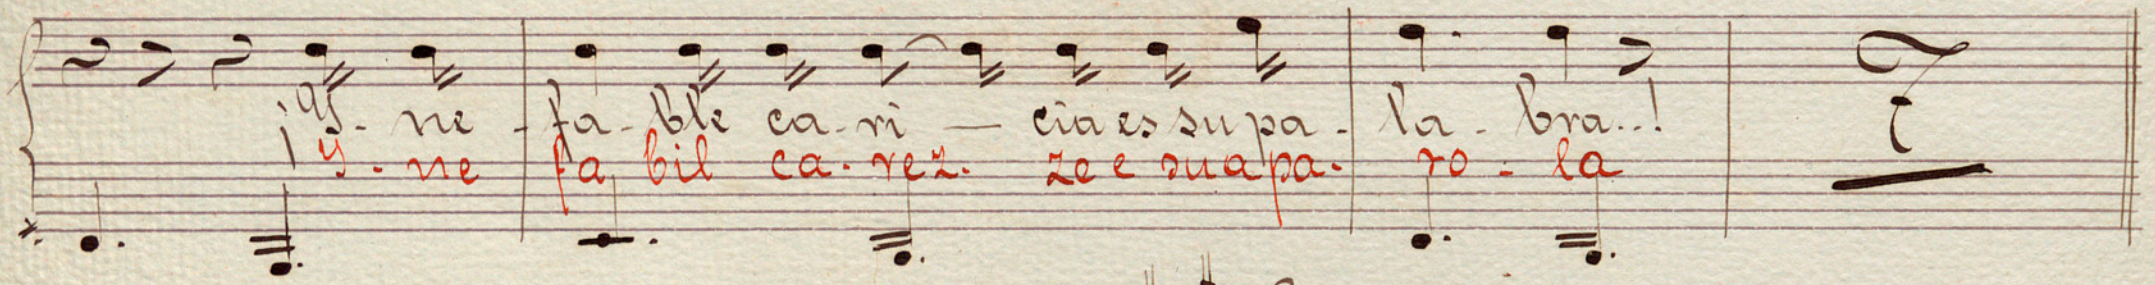 ¡Y-ne-fa-ble ca-ri — cia es su pa-la-bra..!
Y-ne fa bil ca-rez-ze e sua pa-ro-la
7